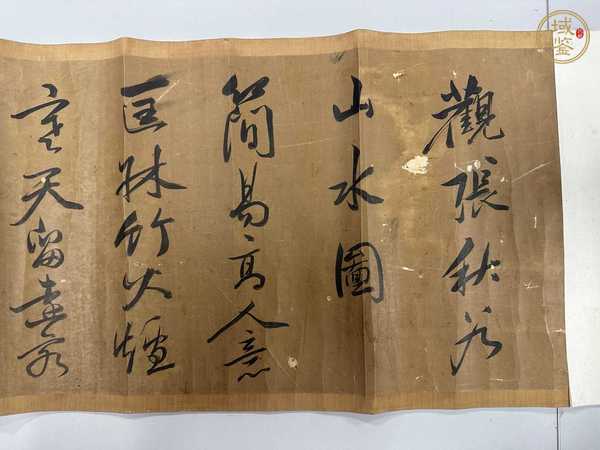 觀張秋谷
山水圖
簡易高人意
匡牀竹火爐
寒天留遠客
域鑒